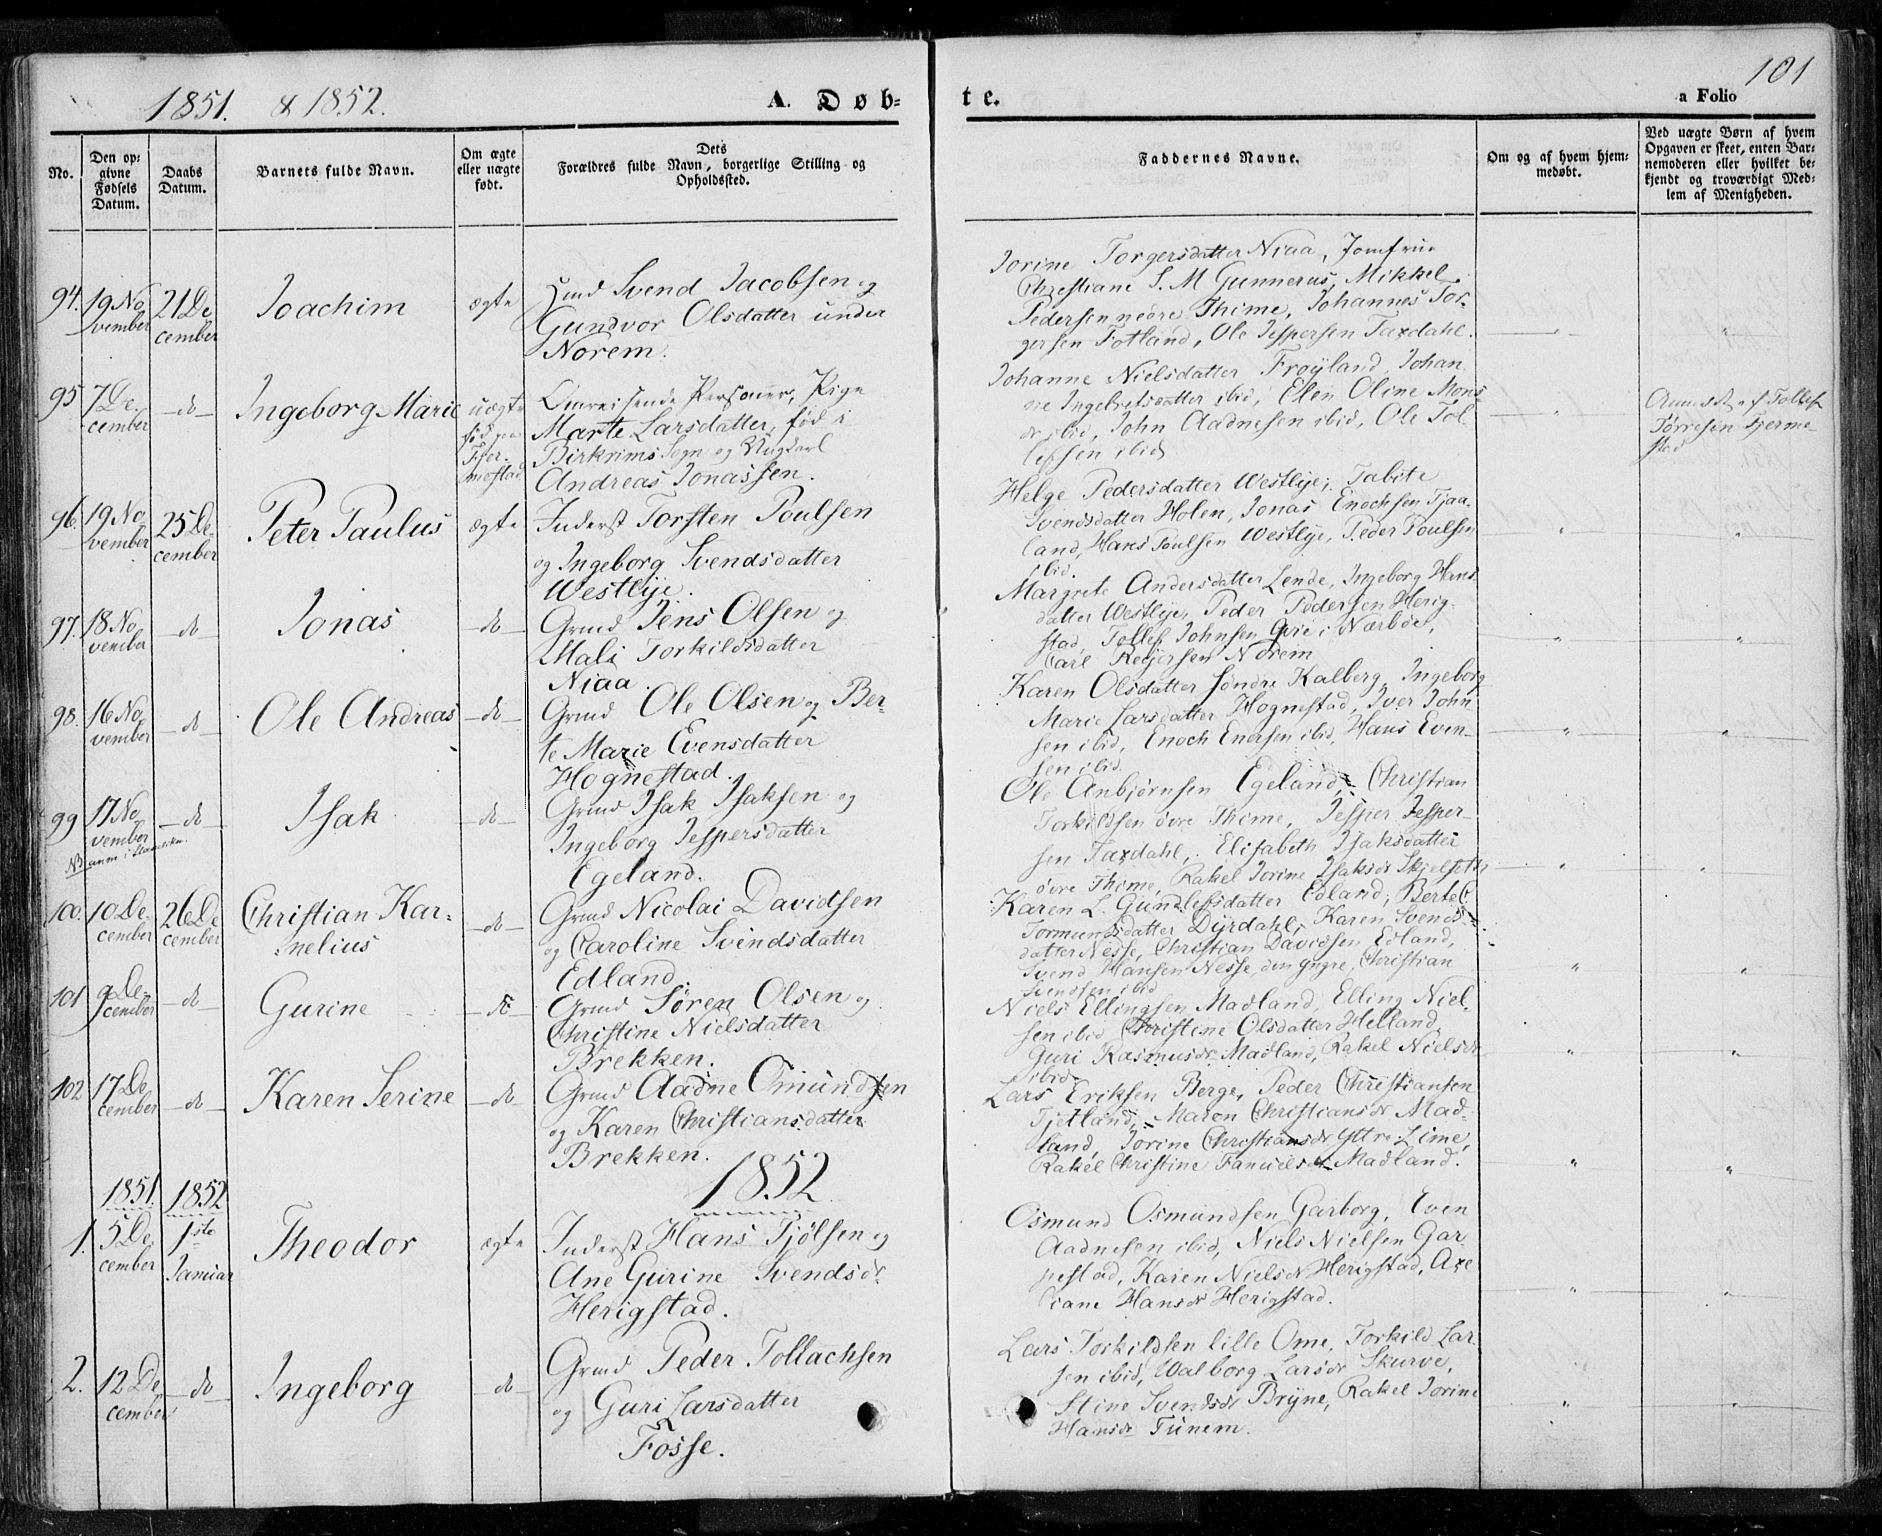 1851. & 1852.
A. Døb-
te.
101
a Folio
No.
Den op-
givne
Fødsels
Datum.
Daabs
Datum.
Barnets fulde Navn.
Om ægte
eller uægte
født.
Dets
Forældres fulde Navn, borgerlige Stilling og
Opholdssted.
Faddernes Navne.
Om og af hvem hjem-
medøbt.
Ved uægte Børn af hvem
Opgaven er skeet, enten Bar-
nemoderen eller hvilket be-
kjendt og troværdigt Med-
lem af Menigheden.
94.
19 No
vember
21 De
cember
Joachim
ægte
Svend Jacobsen og
Gundvor Olsdatter under
Norem.
Jorine Torgersdatter Niaa, Jomfrue
Christiane S. M Gunnerus, Mikkel
Pedersen nedre Thime, Johannes Tor-
gersen Fotland, Ole Jespersen Taxdahl.
95
7 De-
cember
do
Ingeborg Marie
uægte
fød paa
Fjer-
mestad
Omreisende Personer, Pige
Marte Larsdatter, fød i
Birkrims Sogn og Ungkarl
Andreas Jonassen.
Johanne Nielsdatter Frøyland, Johan
ne Ingebretsdatter ibid, Elen Oline Mons
dr ibid, John Aadnesen ibid, Ole Tol
lefsen ibid
Anmeldt af Tollef
Tørresen Fjerme-
stad
96.
19 No
vember
25 De-
cember
Peter Paulus
ægte
Inderst Torsten Poulsen
og Ingeborg Svendsdatter
Westlye.
Helge Pedersdatter Westlye, Tabite
Svendsdatter Holen, Jonas Enochsen Tjaa
land, Hans Poulsen Westlye, Peder Poulsen
ibid.
97.
18 No
vember
do
Jonas
do
Grmd Jens Olsen og
Mali Torkildsdatter
Niaa.
Margrete Andersdatter Lende, Ingeborg Hans
datter Westlye, Peder Pedersen Herig-
stad, Tollef Johnsen Qvie i Nærboe,
Carl Reyersen Norem
98.
16 No
vember
do
Ole Andreas
do
Grmd Ole Olsen og Ber-
te Marie Evensdatter
Hognestad.
Karen Olsdatter søndre Kalberg, Ingeborg
Marie Larsdatter Hognestad, Iver John
sen ibid, Enoch Enersen ibid, Hans Even-
sen ibid.
99
17 No
vember
do
Isak
do
Grmd Isak Isaksen og
Ingeborg Jespersdatter
Egeland.
Ole Anbjørnsen Egeland, Christian
Torkildsen øvre Thime, Jesper Jesper-
sen Taxdahl, Elisabeth Isaksdatter
øvre Thime, Rakel Jorine Isaksdr Skjelseth
100.
10 De-
cember
26 De
cember
Christian Kar-
nelius
do
Grmd Nicolai Davidsen
og Caroline Svendsdatter
Edland.
Karen L. Gundlefsdatter Edland, Bertel
Tormundsdatter Dyrdahl, Karen Svends
datter Nesse, Christian Davidsen Edland,
Svend Hansen Nesse, den yngre, Christian
Svendsen ibid
101
9 De-
cember
do
Gurine
do
Grmd Søren Olsen og
Christine Nielsdatter
Brekken.
Niels Ellingsen Madland, Elling Niel-
sen ibid Christine Olsdatter Helland,
Guri Rasmusdr Madland, Rakel Nielsdr
ibid.
102
17 De
cember
do
Karen Serine
do
Grmd Aadne Omundsen
og Karen Christiansdatter
Brekken.
Lars Eriksen Berge, Peder Christiansen
Tjetland, Maren Christiansdr Mad-
land, Jorine Christiansdr Yttre Lime,
Rakel Christine Madland.
1851.
1852
1852.
1.
5 De
cember
1ste
Januar
Theodor
ægte
Inderst Hans Tjølsen og
Ane Gurine Svendsdr
Herigstad.
Osmund Osmundsen Garborg, Even
Aadnesen ibid, Niels Nielsen Gar
pestad, Karen Nielsdr Herigstad, Axe
liane Hansdr Herigstad.
2.
12 De
cember
do
Ingeborg
do
Grmd Peder Tollachsen
og Guri Larsdatter
Fosse.
Lars Torkildsen lille Ome, Torkild Lar
sen ibid, Walborg Larsdr Skurve,
Stine Svendsdr Bryne, Rakel Jorine
Hansdr Tunem.